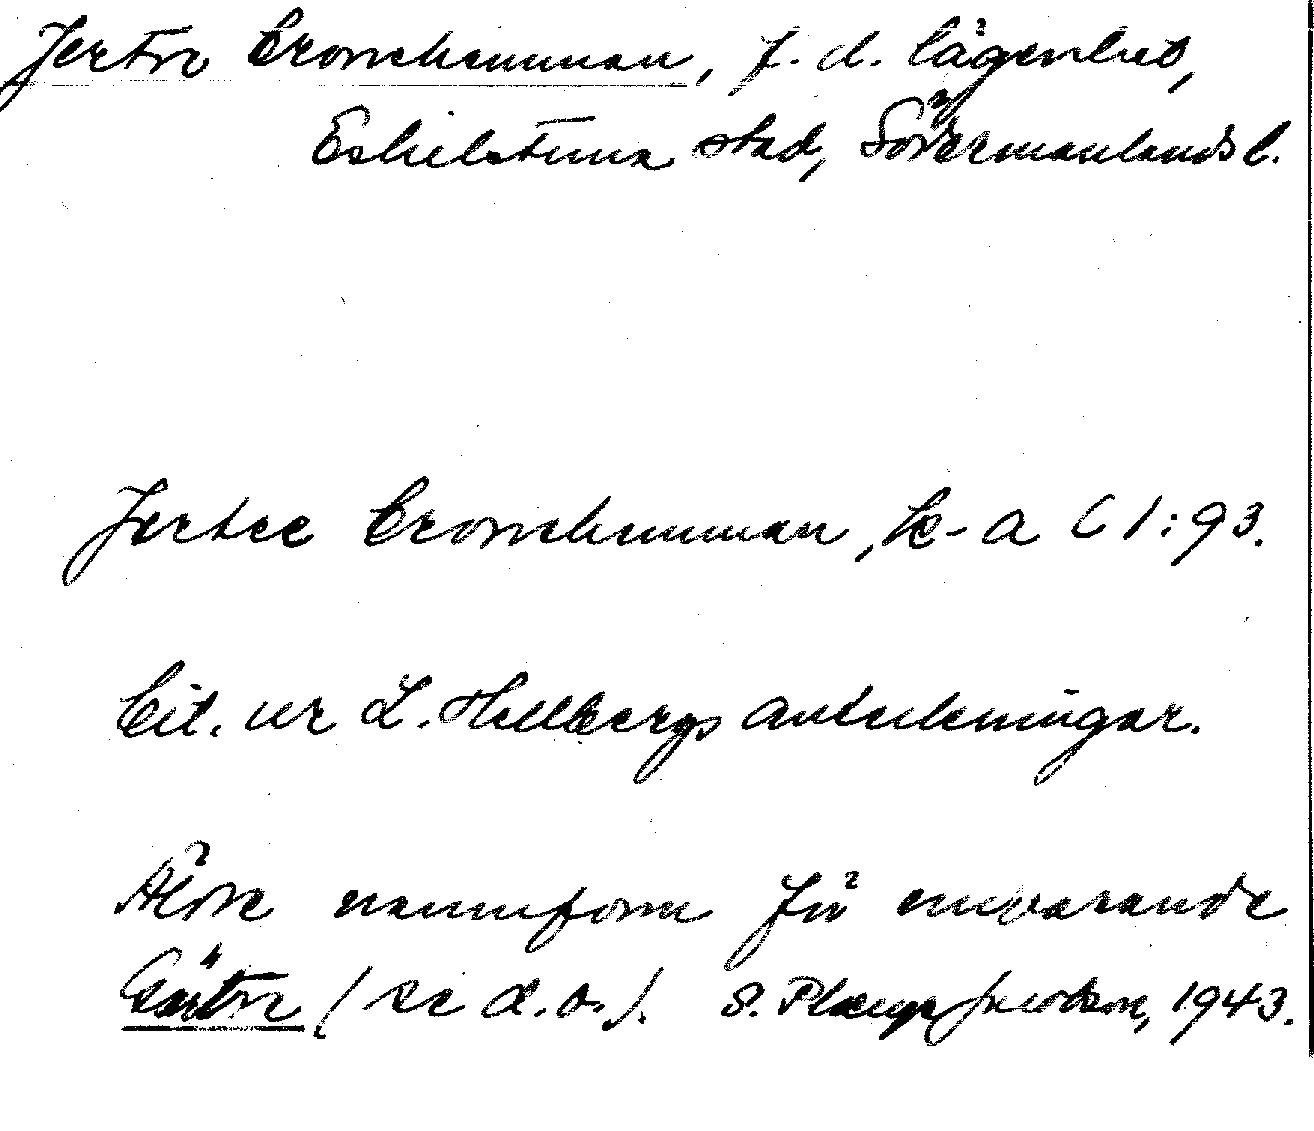 Jertre Cronehemman, f. d. lägenhet,
Eskilstuna stad, Södermanlands l.
Jertee Cronehemman, k-a C 1:93.
Cit. ur L. Hellbergs anteckningar.
Äldre namnform för nuvarande
Gärtre (se d. o.). S. Jacobson, 1943.